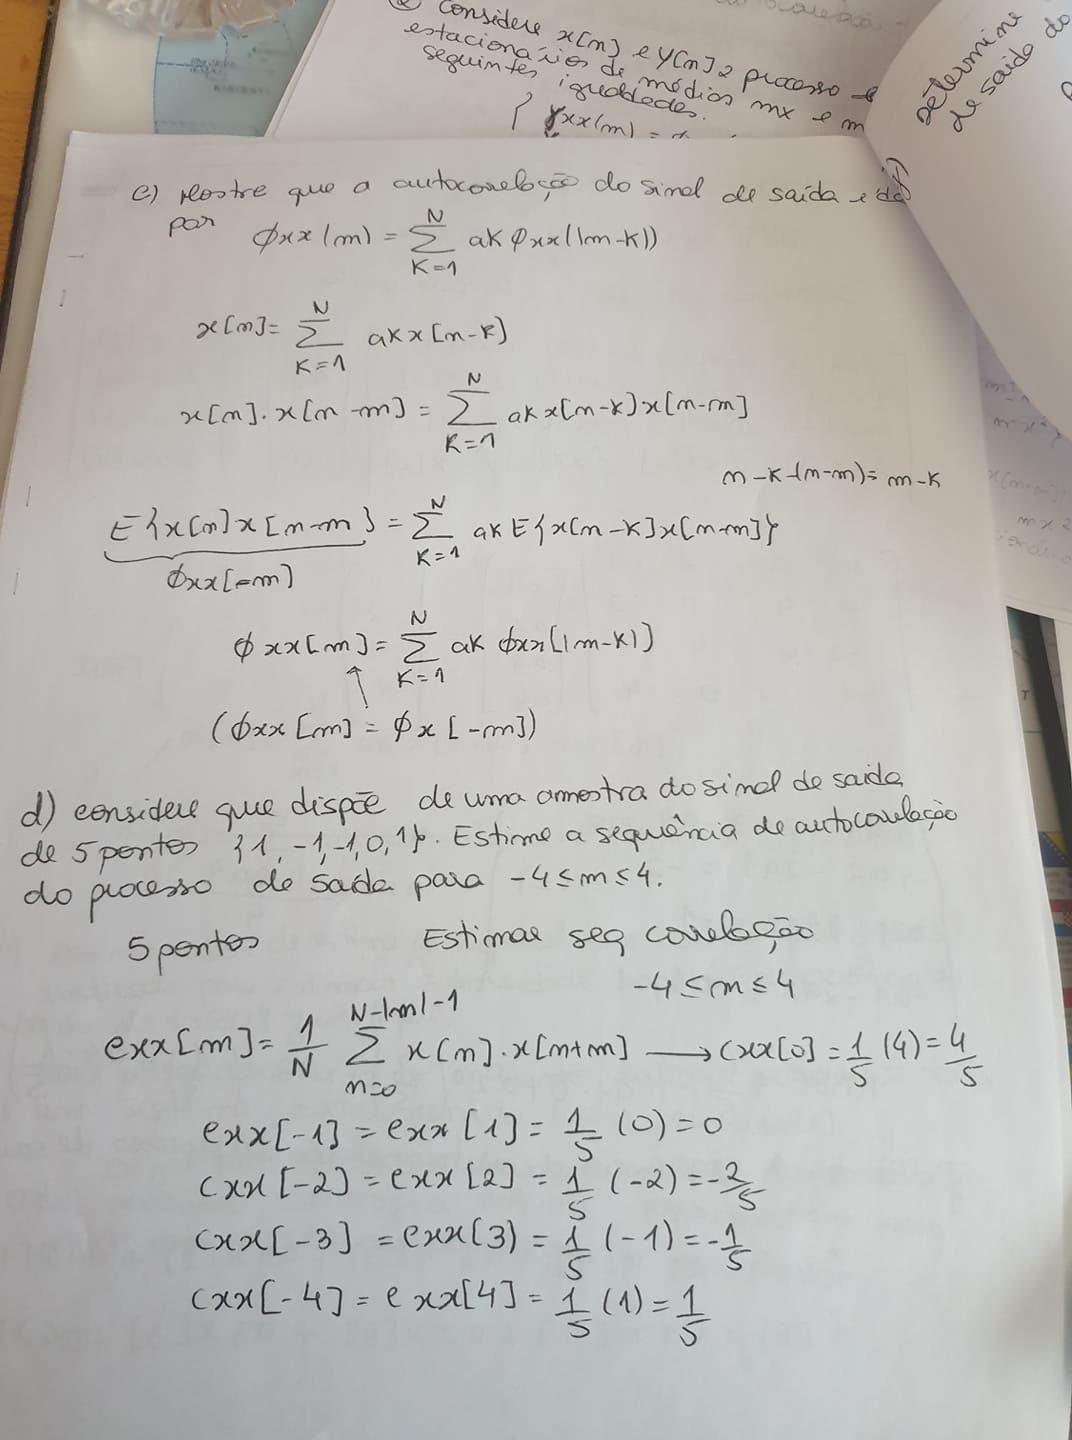 ② Considere x[n] e y[n] 2 processo e
estacionários de médios mx e m
seguintes igualdades.
{ γxx(m) =
Determine
de saída do
c) Mostre que a autocorrelação do sinal de saída e da
por ϕxx(m) = ∑ ak ϕxx(|m-k|)
N
K=1
x[n] = ∑ akx[n-k]
N
K=1
x[n].x[n-m] = ∑ akx[n-k]x[n-m]
N
K=1
n-k-(n-m)= m-k
E{x[n]x[n-m]} = ∑ akE{x[n-k]x[n-m]}
N
K=1
ϕxx[-m]
ϕxx[m]= ∑ ak ϕxx[|m-k|]
N
K=1
(ϕxx[m] = ϕx[-m])
d) considere que dispõe de uma amostra do sinal de saída
de 5 pontos {1,-1,-1,0,1}. Estime a sequência de autocorrelação
do processo de saída para -4≤m≤4.
5 pontos Estimar seq correlação
-4≤m≤4
cxx[m]= 1/N ∑ x[n].x[n+m] → cxx[0] = 1/5 (4) = 4/5
N-|m|-1
n=0
cxx[-1] = cxx[1] = 1/5 (0) = 0
cxx[-2] = cxx[2] = 1/5 (-2) = -2/5
cxx[-3] = cxx(3) = 1/5 (-1) = -1/5
cxx[-4] = cxx[4] = 1/5 (1) = 1/5